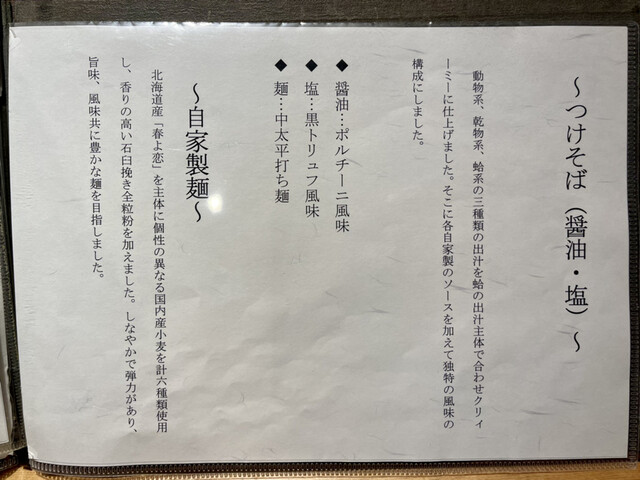 ～つけそば（醤油・塩）～
動物系、乾物系、蛤系の三種類の出汁を蛤の出汁主体で合わせクリィ
ーミーに仕上げました。そこに各自家製のソースを加えて独特の風味の
構成にしました。
◆ 醤油…ポルチーニ風味
◆ 塩…黒トリュフ風味
◆ 麺…中太平打ち麺
～自家製麺～
北海道産「春よ恋」を主体に個性の異なる国内産小麦を計六種類使用
し、香りの高い石臼挽き全粒粉を加えました。しなやかで弾力があり、
旨味、風味共に豊かな麺を目指しました。